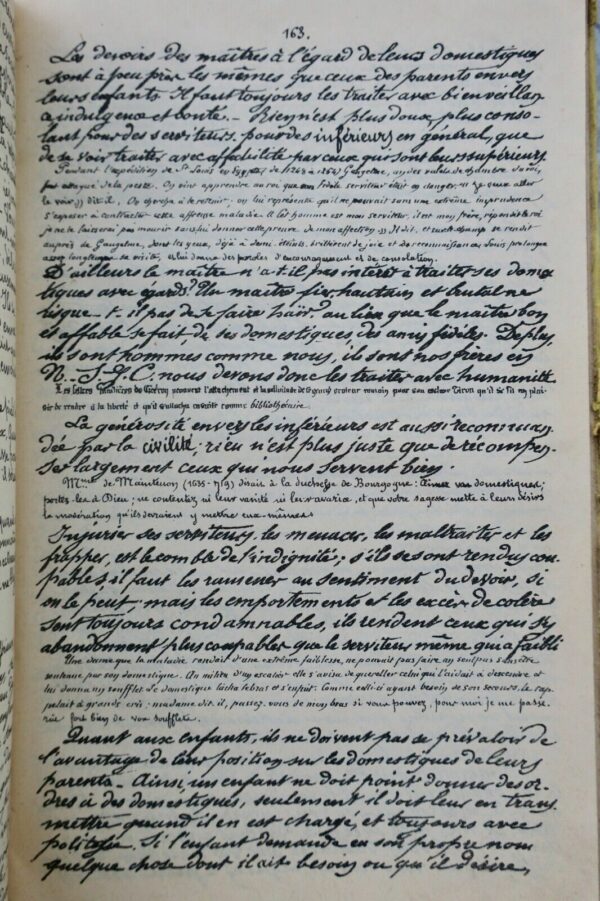 163.
Les devoirs des maîtres à l'égard de leurs domestiques
sont à peu près les mêmes que ceux des parents envers
leurs enfants. Il faut toujours les traiter avec bienveillan-
ce indulgence et bonté. – Rien n'est plus doux, plus conso-
lant pour des serviteurs, pour des inférieurs en général, que
de se voir traiter avec affabilité par ceux qui sont leurs supérieurs.
Pendant l'expédition de St Louis en Egypte (de 1248 à 1254) Gaugelme, un des valets de chambre du roi,
fut attaqué de la peste. On vint apprendre au roi que son fidèle serviteur était en danger: « Je veux aller
le voir » dit-il. On chercha à le retenir; on lui représenta qu'il ne pouvait sans une extrême imprudence
s'exposer à contracter cette affreuse maladie. « Cet homme est mon serviteur, il est mon frère, répondit le roi
je ne le laisserai pas mourir sans lui donner cette preuve de mon affection » Il dit, et sur le champ se rendit
auprès de Gaugelme, dont les yeux, déjà à demi éteints, brillèrent de joie et de reconnaissance. Louis prolongea
assez longtemps sa visite, et lui donna des paroles d'encouragement et de consolation.
D'ailleurs le maître n'a-t-il pas intérêt à traiter ses domes-
tiques avec égards? Un maître fier, hautain et brutal ne
risque-t-il pas de se faire haïr, au lieu que le maître bon
et affable se fait, de ses domestiques, des amis fidèles. De plus,
ils sont hommes comme nous, ils sont nos frères en
N.-S. J. C. nous devons donc les traiter avec humanité.
Les lettres familières de Cicéron prouvent l'attachement et la sollicitude de ce grand orateur romain pour son esclave Tiron qu'il se fit un plai-
sir de rendre à la liberté et qu'il s'attacha ensuite comme bibliothécaire.
La générosité envers les inférieurs est aussi recomman-
dée par la civilité; rien n'est plus juste que de récompen-
ser largement ceux qui nous servent bien.
Mme de Maintenon (1635-1719) disait à la duchesse de Bourgogne: Aimez vos domestiques;
portez-les à Dieu; ne contentez ni leur vanité ni leur avarice, et que votre sagesse mette à leurs désirs
la modération qu'ils devraient y mettre eux-mêmes.
Injurier ses serviteurs, les menacer, les maltraiter et les
frapper, est le comble de l'indignité; s'ils se sont rendus cou-
pables, il faut les ramener au sentiment du devoir, si
on le peut; mais les emportements et les excès de colère
sont toujours condamnables, ils rendent ceux qui s'y
abandonnent plus coupables que le serviteur même qui a failli
Une dame que la maladie rendait d'une extrême faiblesse, ne pouvait pas faire un seul pas sans être
soutenue par son domestique. Au milieu d'un escalier elle s'avisa de quereller celui qui l'aidait à descendre et
lui donna un soufflet. Le domestique lâcha le bras et s'enfuit. Comme celle-ci ayant besoin de son secours, le rap-
pelait à grands cris; madame dit-il, passez-vous de mon bras si vous pouvez, pour moi je me passe-
rai fort bien de vos soufflets.
Quant aux enfants, ils ne doivent pas se prévaloir de
l'avantage de leur position sur les domestiques de leurs
parents. – Ainsi un enfant ne doit point donner des or-
dres à des domestiques, seulement il doit leur en trans-
mettre quand il en est chargé, et toujours avec
politesse. Si l'enfant demande en son propre nom
quelque chose dont il ait besoin ou qu'il désire,